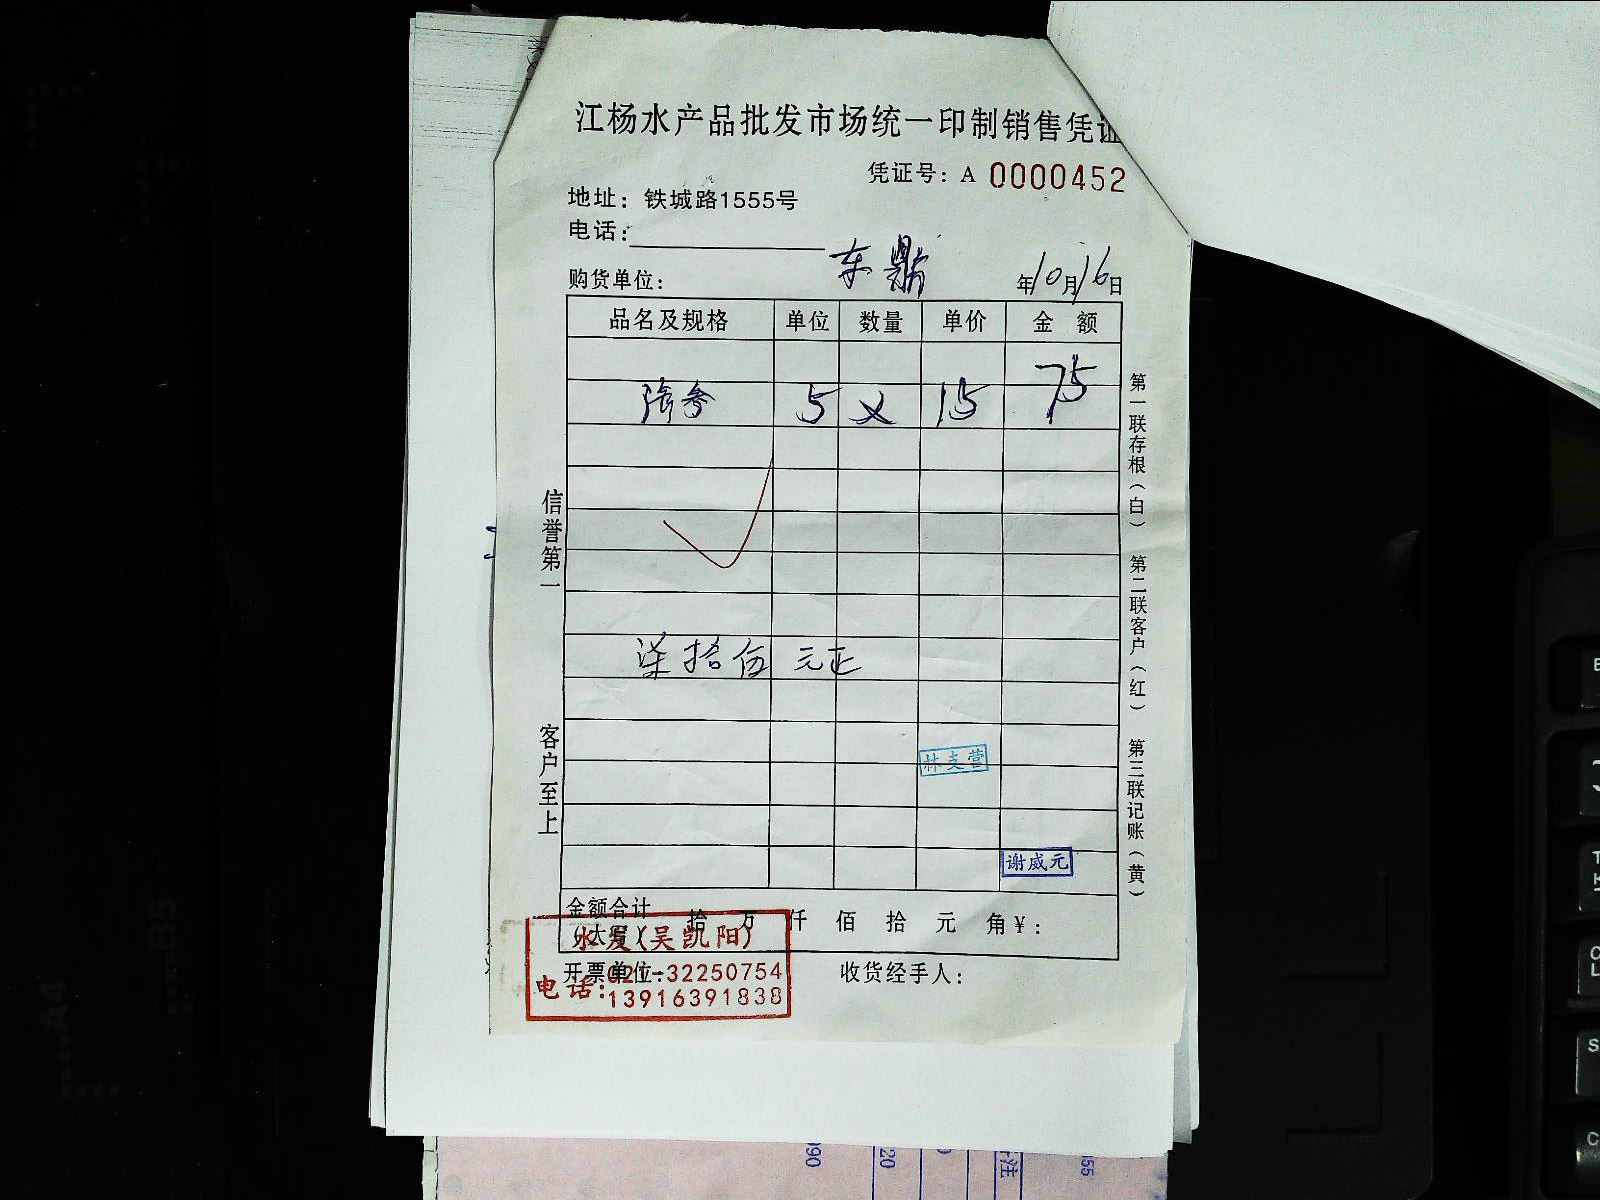 江杨水产品批发市场统一印制销售凭证
凭证号：A 0000452
地址：铁城路1555号
电话：
购货单位： 东鼎 年10月16日
品名及规格 单位 数量 单价 金 额
5 × 15 75
柒拾伍元正
林支营
谢威元
金额合计 拾 万 仟 佰 拾 元 角￥：
（大写）
水发(吴凯阳)
开票单位： 收货经手人：
电话：021-32250754
13916391838
信誉第一
客户至上
第一联存根（白） 第二联客户（红） 第三联记账（黄）